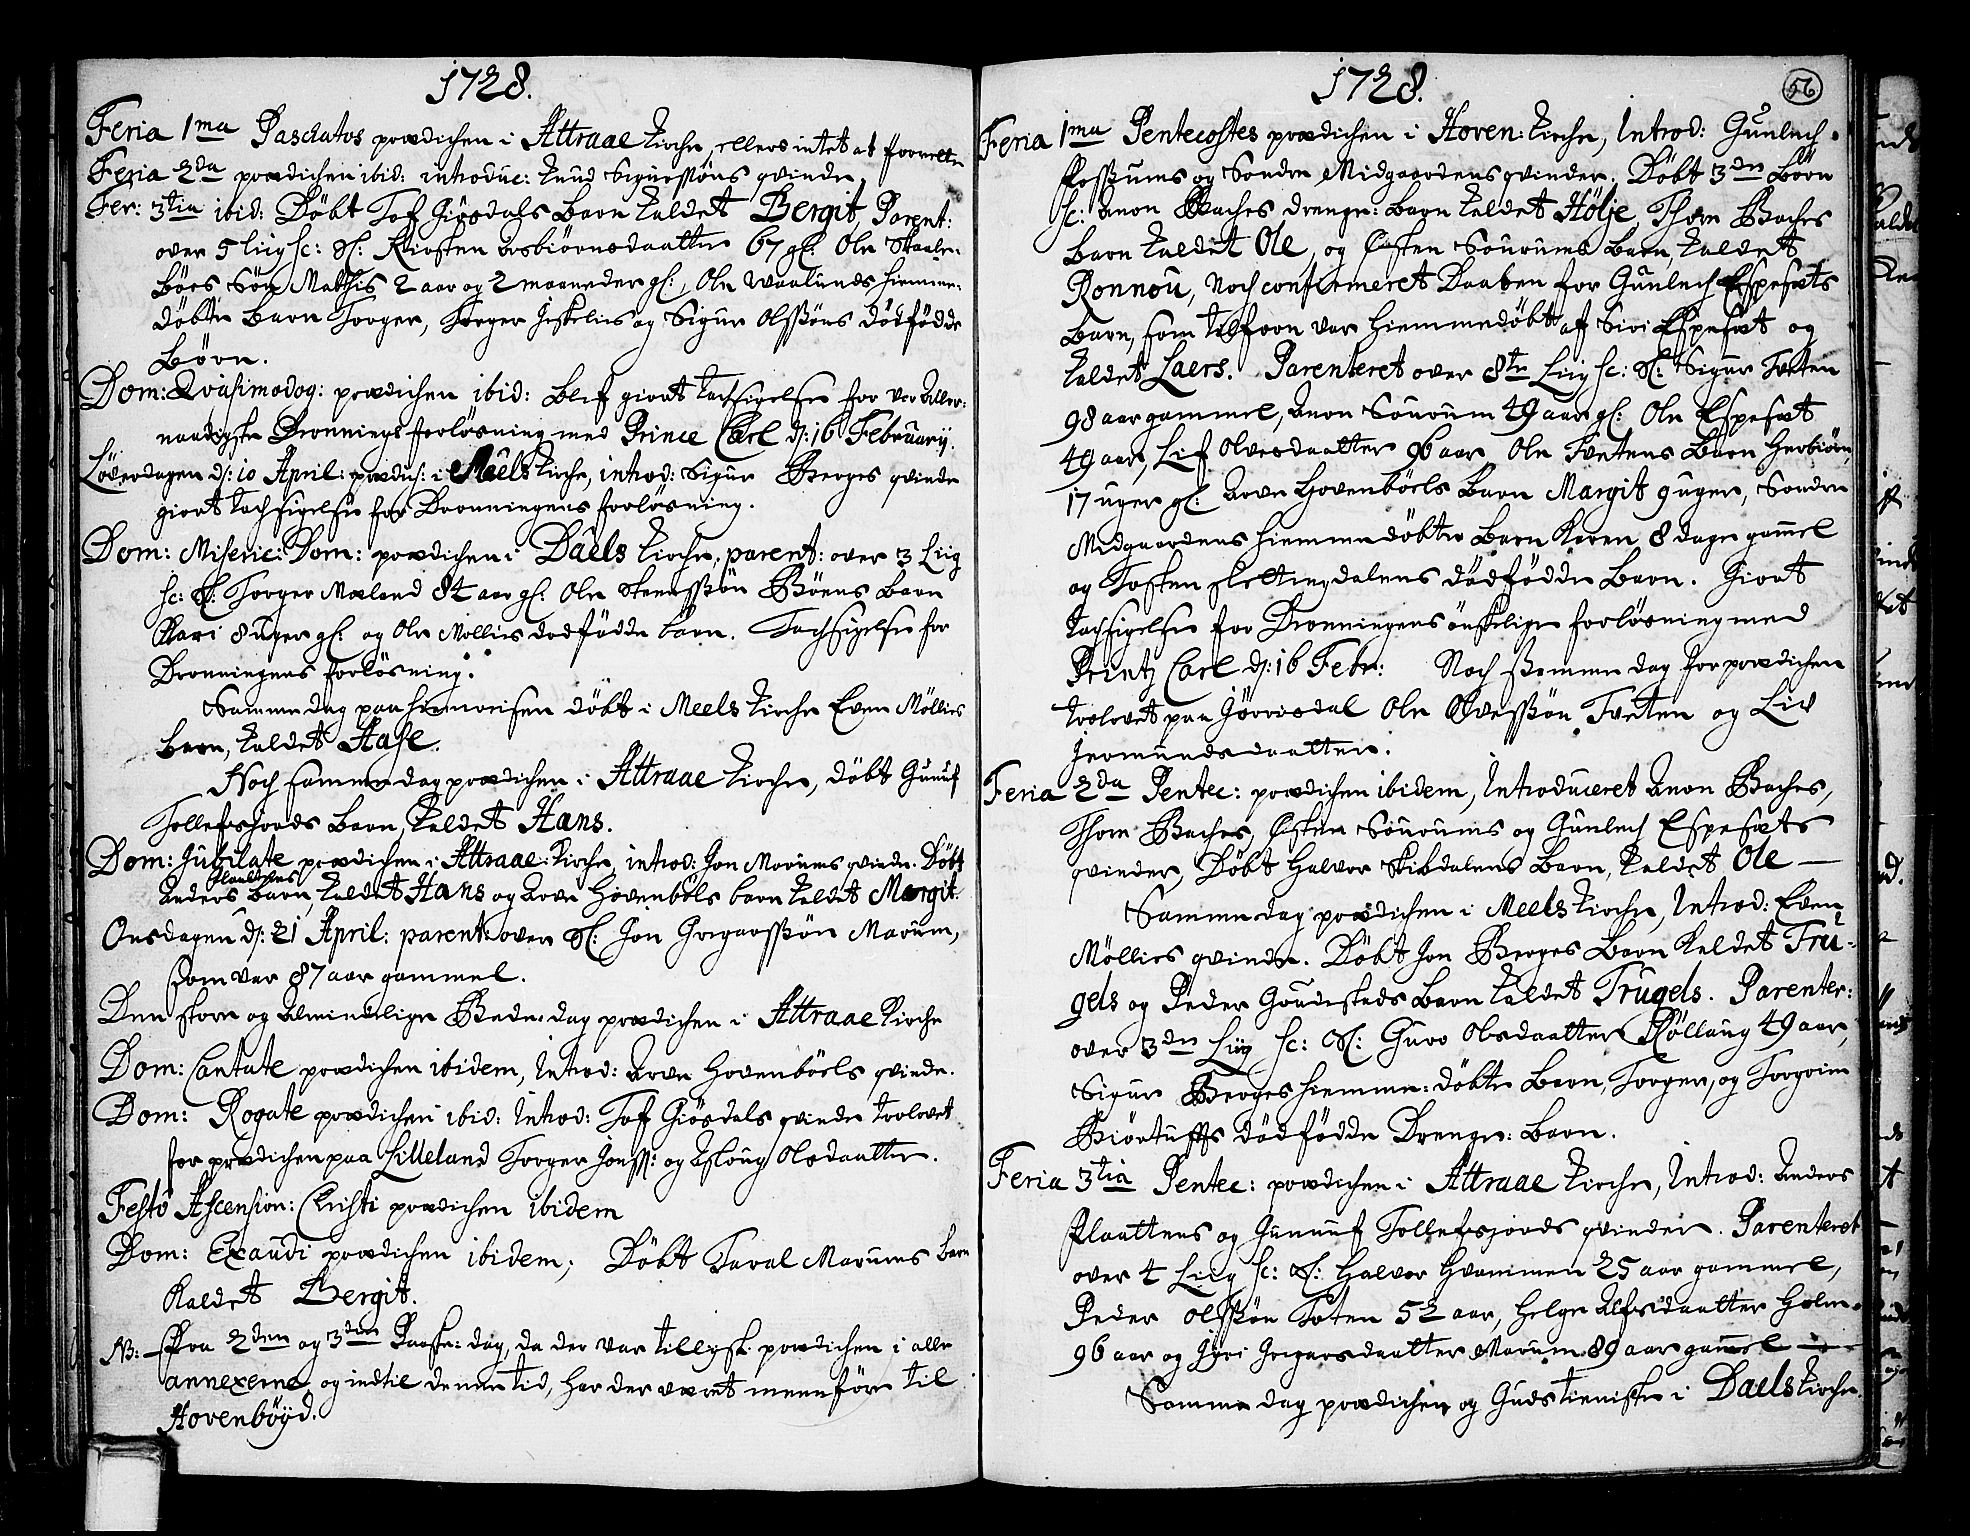 1728.
Feria 1ma Paschatos prædichen i Attraae Kirche, ellers intet at forrette
Feria 2da prædichen ibid: introduc: Knud Sigurssöns qvinde.
Fer: 3tia ibid: Döbt Tof Giösdals Barn kaldet Bergit, Parent:
over 5 Liig sc: Sl: Kirsten Asbiörnsdaatter 67 gl: Ole Skaale-
böes Sön Mathis 2 aar og 2 maaneder gl:, Ole Waalunds hiemme-
döbte Barn Torger, Torger og Sigur Olssöns dödfödde
Börn.
Dom: Qvasimodog: prædichen ibid: Blef giort Tachsigelse for vor Aller-
naadigste Dronnings forlösning med Prince Carl d: 16 Februarij.
Löverdagen d: 10 April: prædich: i Mæels Kirche, introd: Sigur Berges qvinde
giort Tachsigelse for Dronningens forlösning.
Dom: Miseric: Dom: prædichen i Daels Kirche, parent: over 3 Liig
sc: Sl: Torger Moeland 84 aar gl: Ole Steenssön Böens Barn
Kari 8 uger gl: og Ole Mölliis dödfödde barn. Tachsigelse for
Dronningens forlösning.
Samme dag paa hiemreisen döbt i Meels Kirche Even Möllies
Barn, kaldet Aase.
Noch samme dag prædichen i Attraae Kirche, döbt Gunuf
Tollefsjords Barn, kaldet Hans.
Dom: Jubilate prædichen i Attraae Kirche, introd: Jon Marums qvinde. Döbt
Anders Plaattens Barn, kaldet Hans og Aove Hovenböls barn kaldet Margit.
Onsdagen d: 21 April: parent: over Sl: Jon Gregarssön Marum,
som var 87 aar gammel.
Den store og Almindelige Bede-dag prædichen i Attraae Kirche
Dom: Cantate prædichen ibidem, Introd: Aove Hovenböels qvinde.
Dom: Rogate prædichen ibid: Introd: Tof Giösdals qvinde trolovet
for prædichen paa Lilleland Torger Jonss: og Asloug Olsdaatter.
Festo Ascension: Christi prædichen ibidem
Dom: Exaudi prædichen ibidem, Döbt Taral Marums barn
Kaldet Bergit.
NB: Fra 2den og 3die Paaske-dag, da der var tillyst prædichen i alle
annexerne, og indtil denne tid, har der været meenföre til
Hovenböyd.
1728.
56
Feria 1ma Pentecostes prædichen i Hoven-Kirche, Introd: Gunlech
Fossums og Sondre Midgaardens qvinder. Döbt 3de Börn
sc: Anon Baches drenge-barn kaldet Hölje Thore Baches
Barn kaldet Ole, og Östen Sourums Barn, kaldet
Ronnou, Noch confirmeret Daaben for Gunlech Espesets
Barn, som tilforn var hiemmedöbt af Siri Espeset og
kaldet Laers. Parenteret over 8te Liig sc: Sl: Sigur Tveten
98 aar gammel, Anon Sourum 49 aar gl: Ole Espeset
49 aar, Lif Olvesdaatter 96 aar, Ole Tvetens Barn Herbiörn
17 uger gl: Aove Hovenböels Barn Margit 9 uger, Sondre
Midgaardens hiemmedöbte Barn Karen 8 dage gamel
og Tosten Sletingdalens dödfödde Barn. Giort
Tachsigelse for Dronningens önskelige forlösning med
Printz Carl d: 16 Febr: Noch samme dag for prædichen
trolovet paa Jörrisdal Ole Olvessön Tveten og Liv
Jermundsdaatter.
Feria 2da Pentec: prædichen ibidem, Introduceret Anon Baches,
Thore Baches, Östen Sourums og Gunlech Espesets
qvinder, Döbt Halvor Skibdalens Barn, kaldet Ole —
Samme dag prædichen i Meels Kirche, Introd: Even
Möllies qvinde. Döbt Jon Berges Barn kaldet Tru-
gels og Peder Goudesteds Barn kaldet Trugels. Parenter:
over 3de Liig sc: Sl: Guro Olsdaatter Röllaug 49 aar,
Sigur Berges hiemme-döbte Barn, Torger, og Torgrim
Biörtuffts dödfödde Drenge-Barn.
Feria 3tia Pentec: prædichen i Attraae Kirche, Introd: Anders
Plaattens og Gunuf Tollefsjords qvinder. Parenteret
over 4 Liig sc: Sl: Halvor Hvammen 25 aar gammel,
Peder Olssön Foten 52 aar, Helge Alfsdaatter Holm
96 aar og Jöri Gregarsdaatter Marum 89 aar gamel —
Samme dag prædichen og Guds tieniste i Daels Kirche.